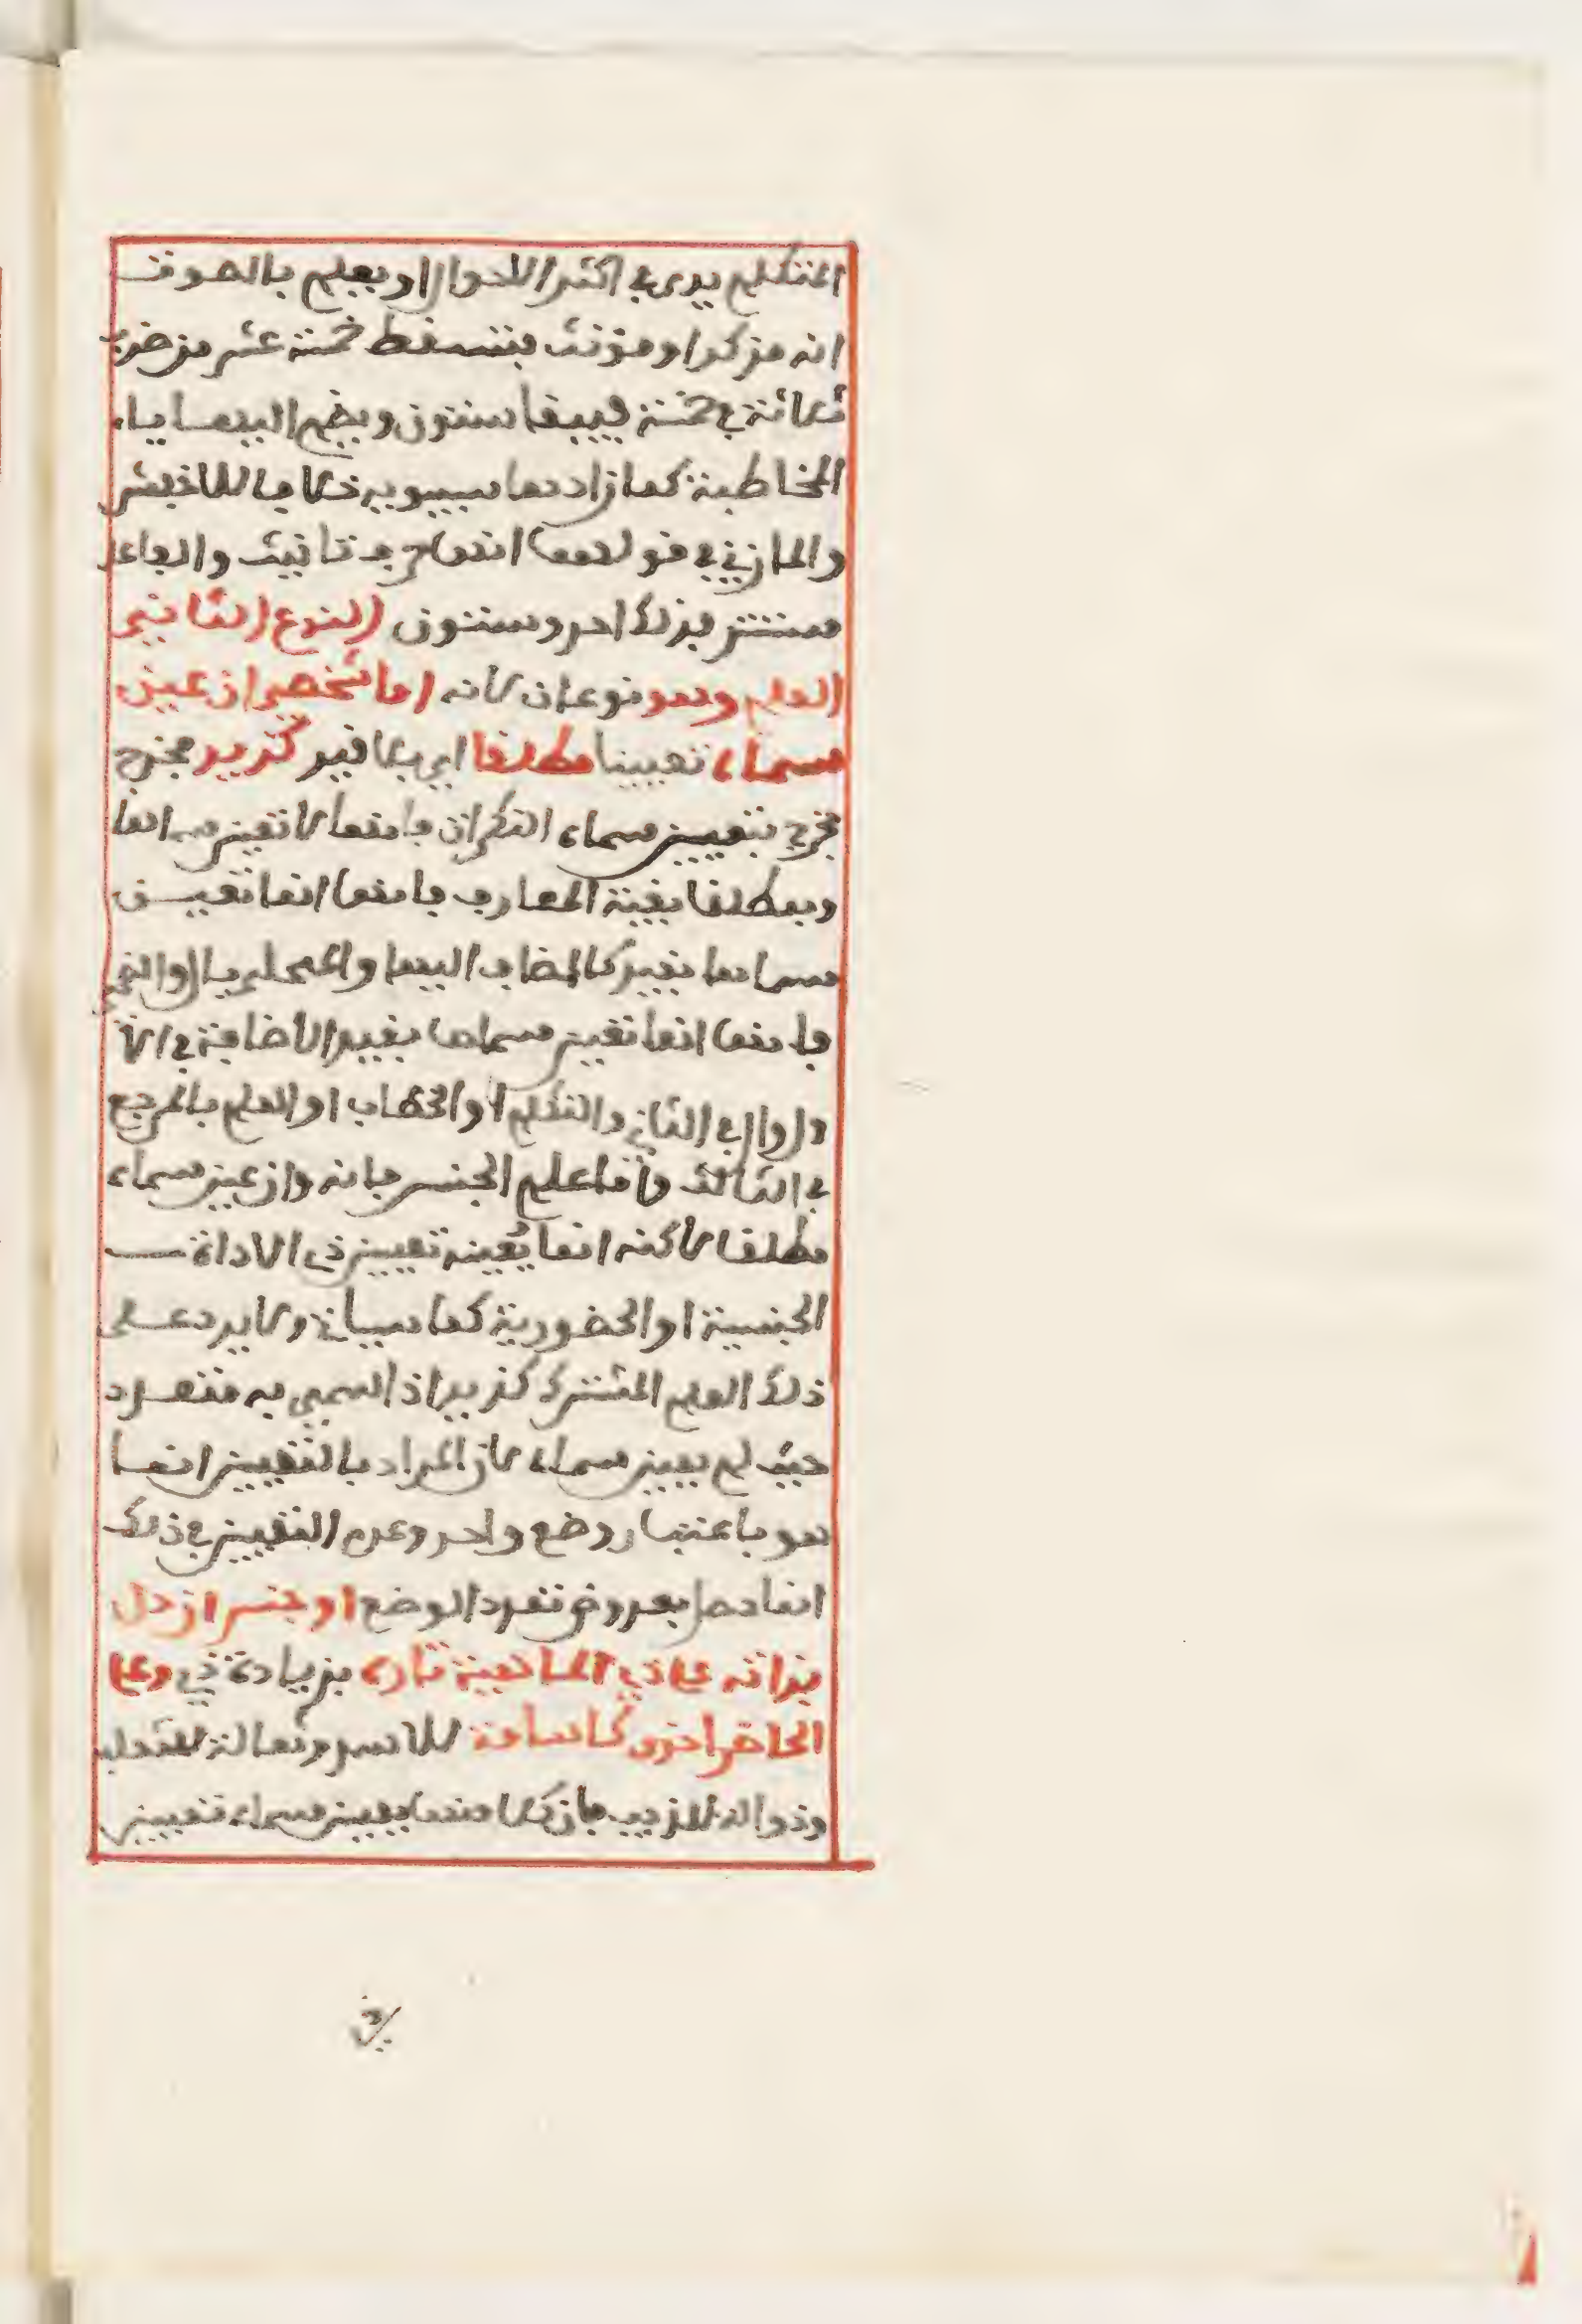 المتكلم يرى في اكثر الاحوال او يعلم بالصوت
انه مذكر او مؤنث فتسقط خمسة عشر من ضرب
ثمانية في خمسة فيبقا ستون ويضم اليها ياء
المخاطبة كما زادها سيبويه خلافا للاخفش
والمازني في قولهما انها حرف تانيث والفاعل
مستتر فذلك احد وستون النوع الثاني
العلم وهو نوعان لانه اما شخصي ان عين
مسماه تعيينا مطلقا اي بلا قيد كزيد مخرج
فخرج بتعيين مسماه النكرات فانها لا تعين مسماها
وبمطلقا بقية المعارف فانها انما تعيين
مسماها بقيد كالمضاف اليها والمحلى بال والضمير
فانها انما تعين مسماها بقيد الاضافة في الا
ول وال في الثاني والتكلم او الخطاب او العلم بالمرجع
في الثالث واما علم الجنس فانه وان عين مسماه
مطلقا لاكنه انما يُعينه تعيين ذي الاداة
الجنسية او الحضورية كما سياتي ولا يرد على
ذلك العلم المشترك كزيد اذ السمي به متعدد
حيث لم يعين مسماه لان المراد بالتعيين انما
هو باعتبار وضع واحد وعدم التعيين في ذلك
انما حصل بعروض تعدد الوضع او جنسي ان دل
بذاته على ذي الماهية تارة بزيادة ذي وعلى
الحاضر اخرى كاسامة للاسد وثعالة للثعلب
وذوالة للذيب فان كلا منها يعين مسماه تعيين